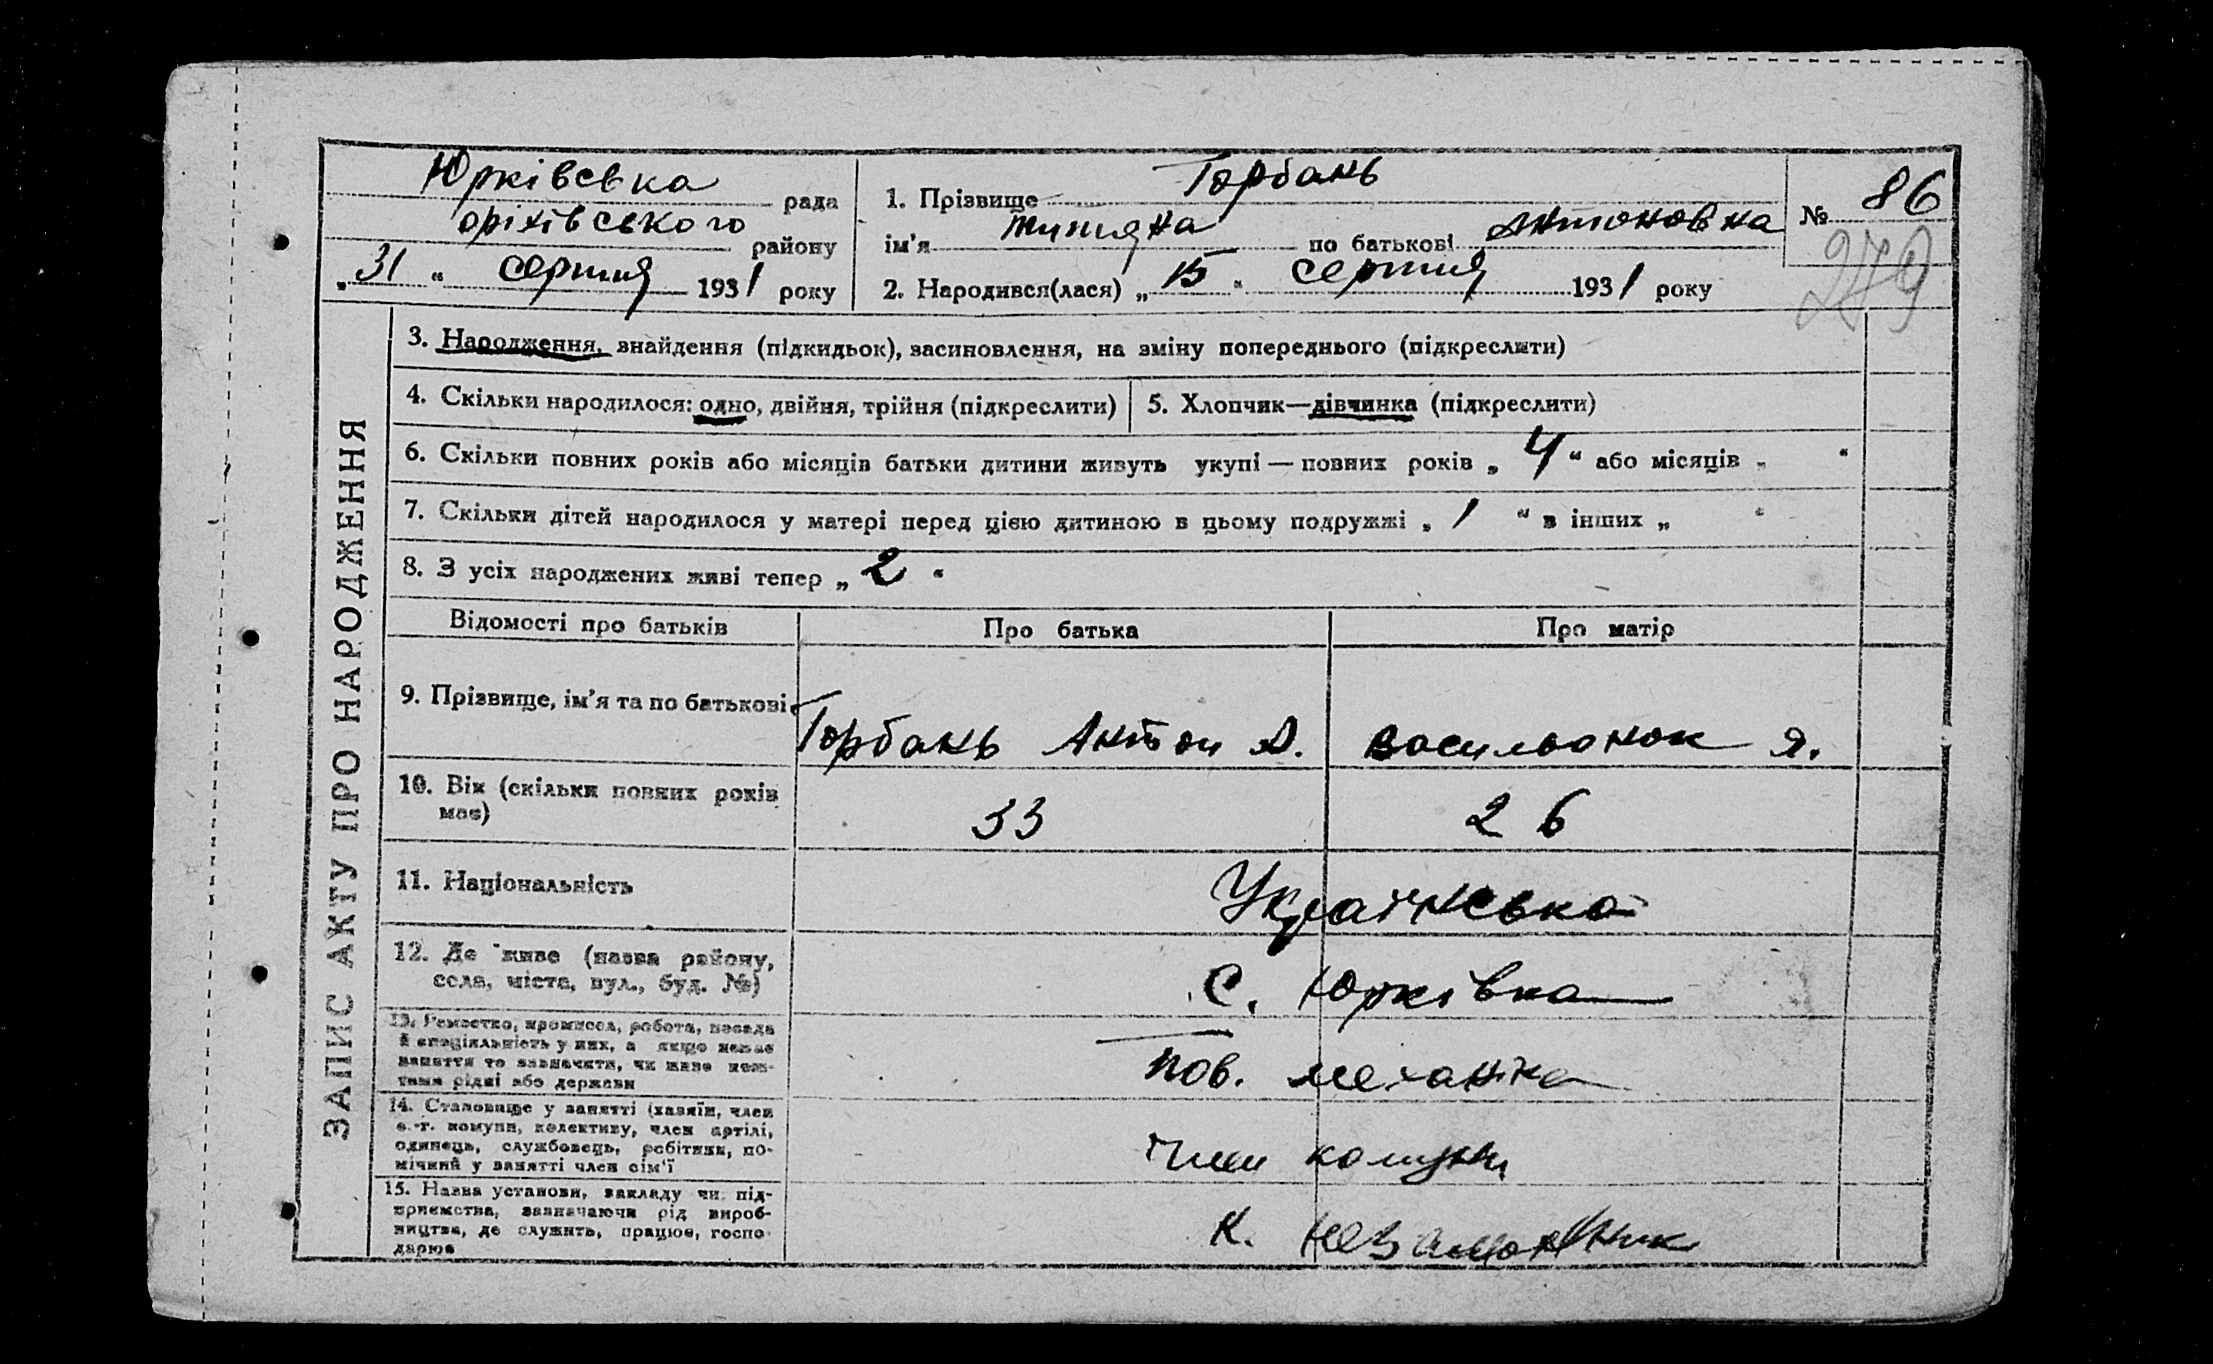 Юрківська рада
оріхівського району
„31“ серпня 1931 року
1. Прізвище Горбань
ім’я по батькові Антоновна
2. Народився(лася) „15“ серпня 1931 року
№ 86
279
ЗАПИС АКТУ ПРО НАРОДЖЕННЯ
3. Народження, знайдення (підкидьок), васиновлення, на зміну попереднього (підкреслити)
4. Скільки народилося: одно, двійня, трійня (підкреслити)
5. Хлопчик—дівчинка (підкреслити)
6. Скільки повних років або місяців батьки дитини живуть укупі — повних років „4“ або місяців „ “
7. Скільки дітей народилося у матері перед цією дитиною в цьому подружжі „1“ в інших „ “
8. З усіх народжених живі тепер „2“
Відомості про батьків
Про батька
Про матір
9. Прізвище, ім’я та по батькові
Горбань Антон А.
Васильонок Я.
10. Вік (скільки повних років
має)
33
26
11. Національність
Українська
12. Де живе (назва району,
села, міста, вул., буд. №)
с. Юрківка
13. Ремество, промисел, робота, посада
й спеціяльність у них, а якщо немає
заняття то зазначити, чи живе кош-
тами рідні або держави
Пов. механіка
14. Становище у занятті (хазяїн, член
с.-г. комуни, колективу, член артілі,
одинець, службовець, робітник, по-
мічний у занятті член сім’ї
Член комуни
15. Назва установи, закладу чи під-
приємства, зазначаючи рід вироб-
ництва, де служить, працює, госпо-
дарює
К. Незаможник